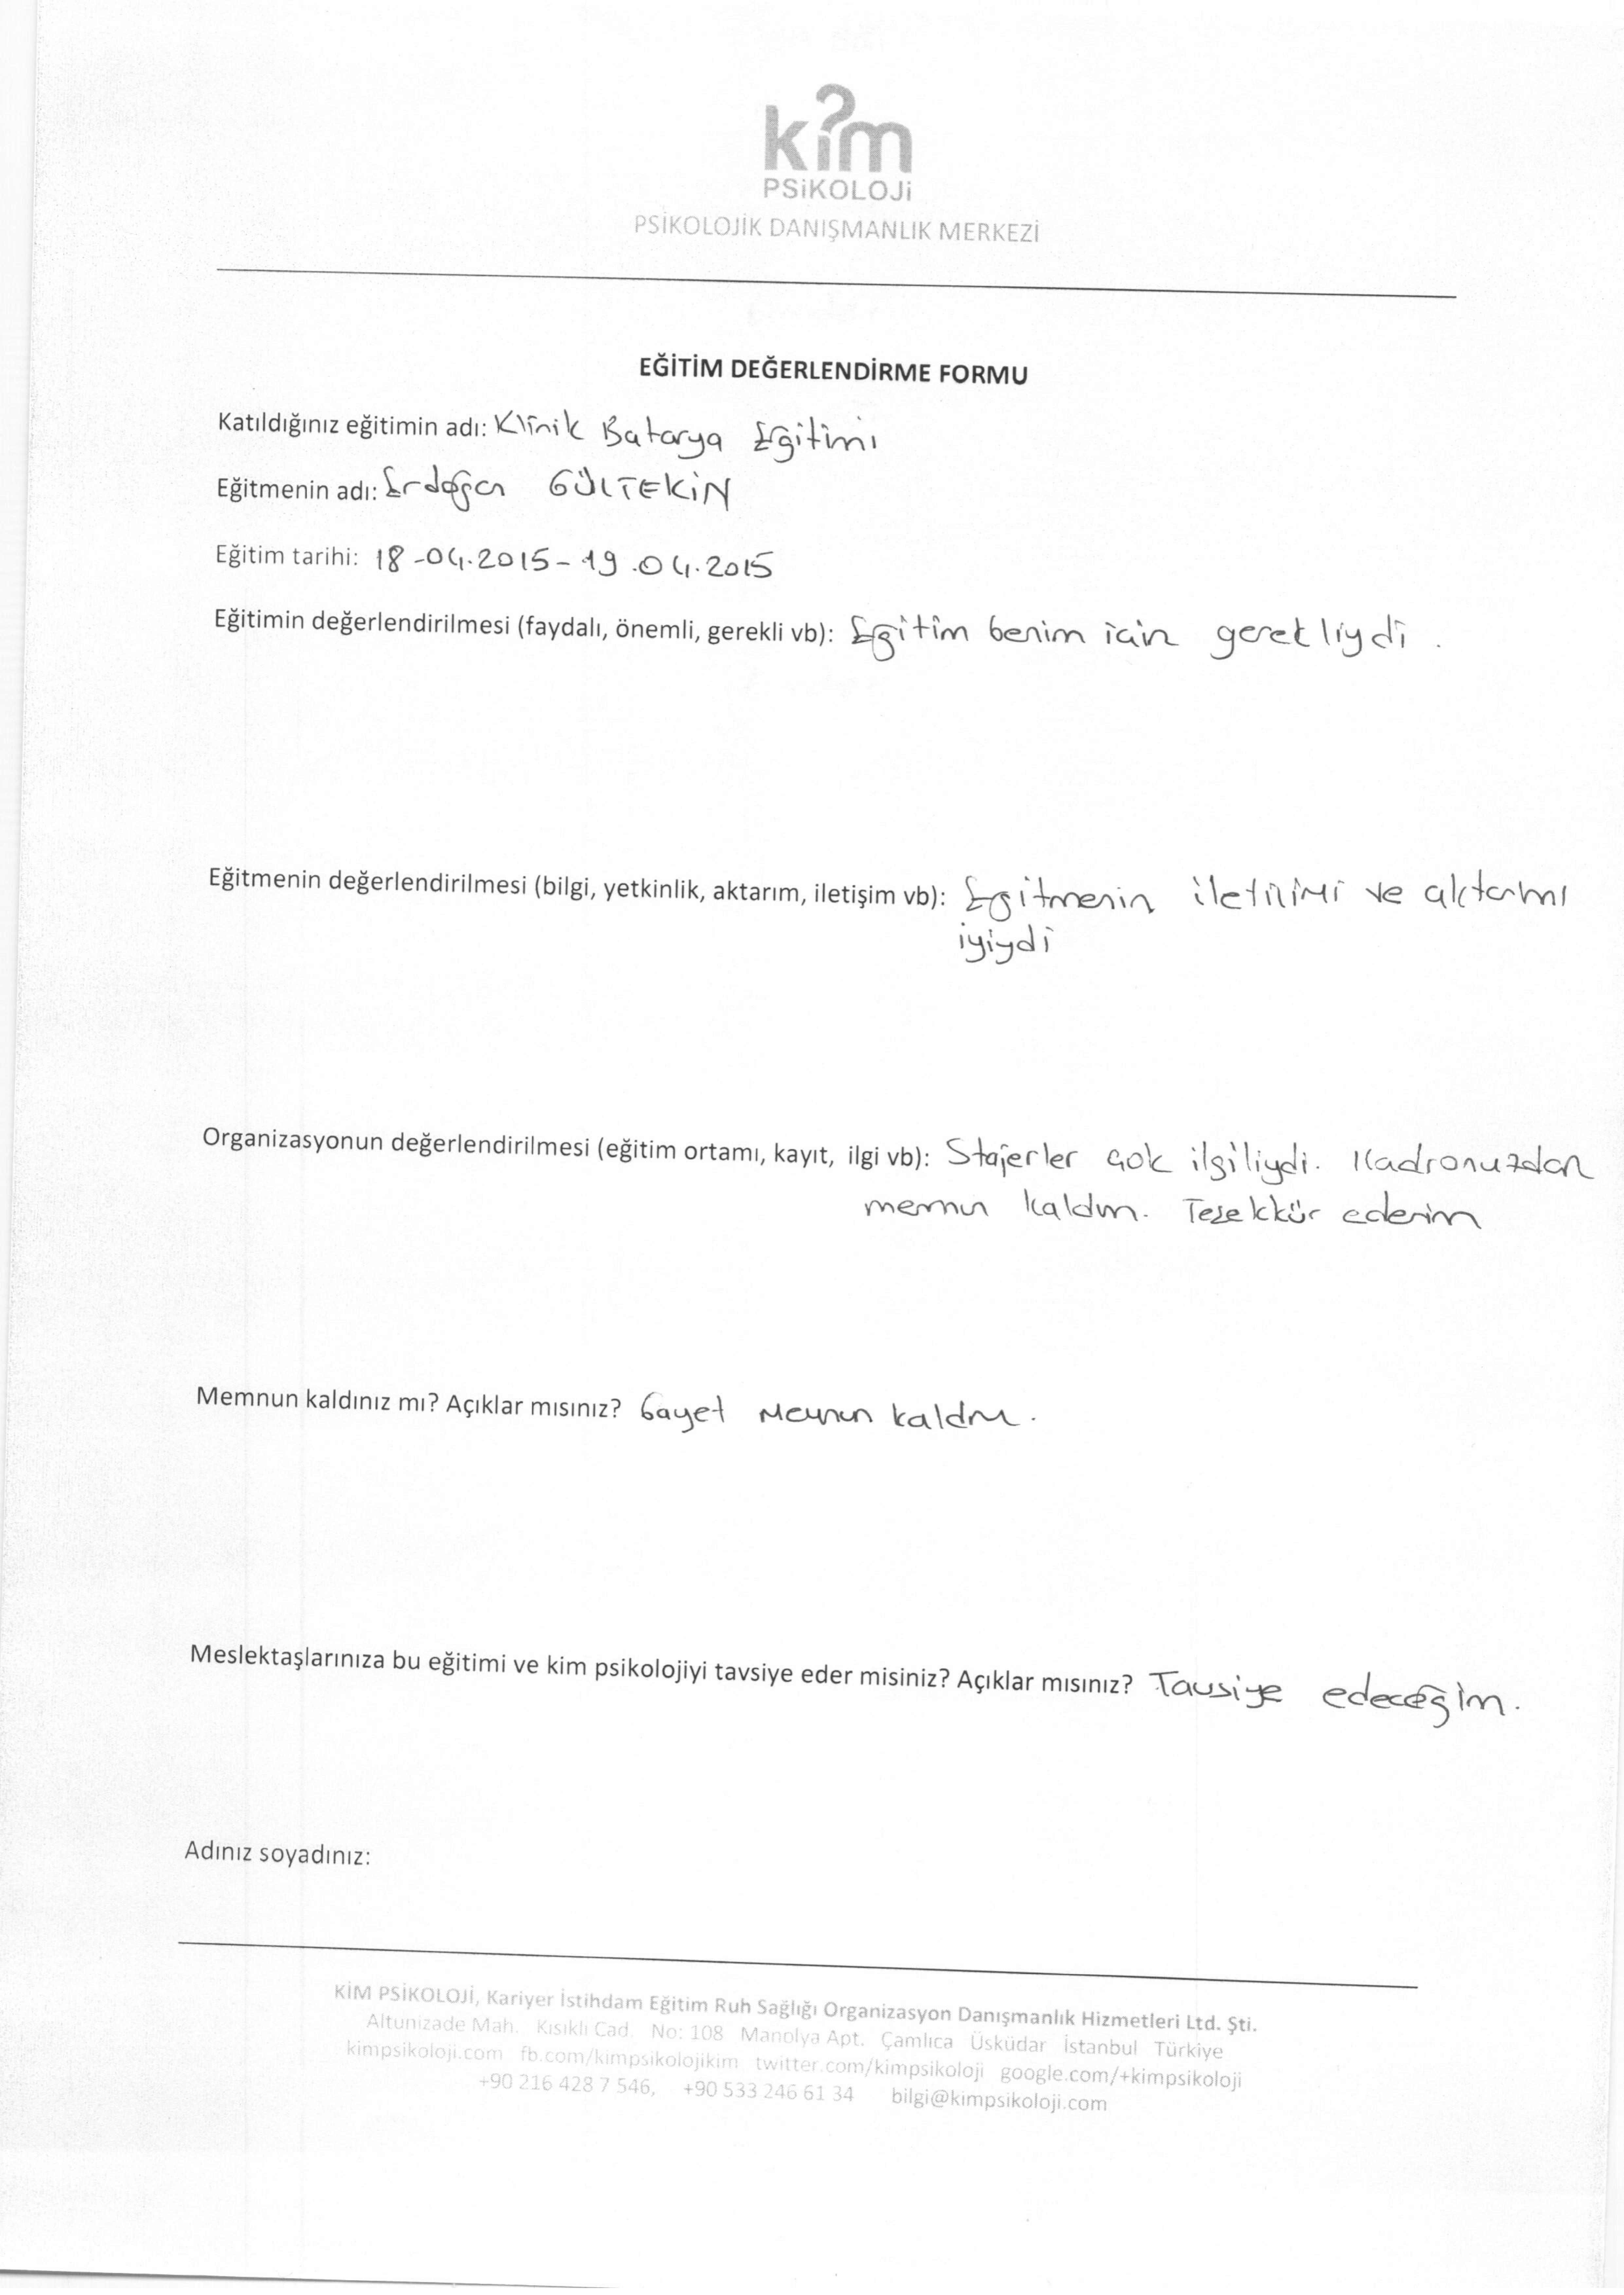 kim
PSiKOLOJi
PSİKOLOJİK DANIŞMANLIK MERKEZİ
EĞİTİM DEĞERLENDİRME FORMU
Katıldığınız eğitimin adı: Klinik Batarya Eğitimi
Eğitmenin adı: Erdoğan GÜLTEKİN
Eğitim tarihi: 18-04.2015-19.04.2015
Eğitimin değerlendirilmesi (faydalı, önemli, gerekli vb): Eğitim benim için gerekliydi.
Eğitmenin değerlendirilmesi (bilgi, yetkinlik, aktarım, iletişim vb): Egitmenin iletişimi ve aktarımı
iyiydi
Organizasyonun değerlendirilmesi (eğitim ortamı, kayıt, ilgi vb): Stajerler çok ilgiliydi. Kadronuzdan
memnun kaldım. Teşekkür ederim
Memnun kaldınız mı? Açıklar mısınız? Gayet Memnun kaldım.
Meslektaşlarınıza bu eğitimi ve kim psikolojiyi tavsiye eder misiniz? Açıklar mısınız? Tavsiye edeceğim.
Adınız soyadınız:
KİM PSİKOLOJİ, Kariyer İstihdam Eğitim Ruh Sağlığı Organizasyon Danışmanlık Hizmetleri Ltd. Şti.
Altunizade Mah. Kısıklı Cad. No: 108 Manolya Apt. Çamlıca Üsküdar İstanbul Türkiye
kimpsikoloji.com fb.com/kimpsikolojikim twitter.com/kimpsikoloji google.com/+kimpsikoloji
+90 216 428 7 546, +90 533 246 61 34 bilgi@kimpsikoloji.com